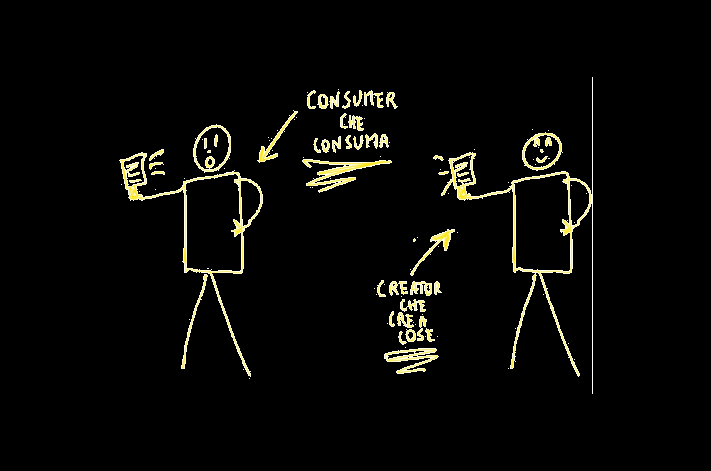 CONSUMER
CHE
CONSUMA
CREATOR
CHE
CREA
COSE